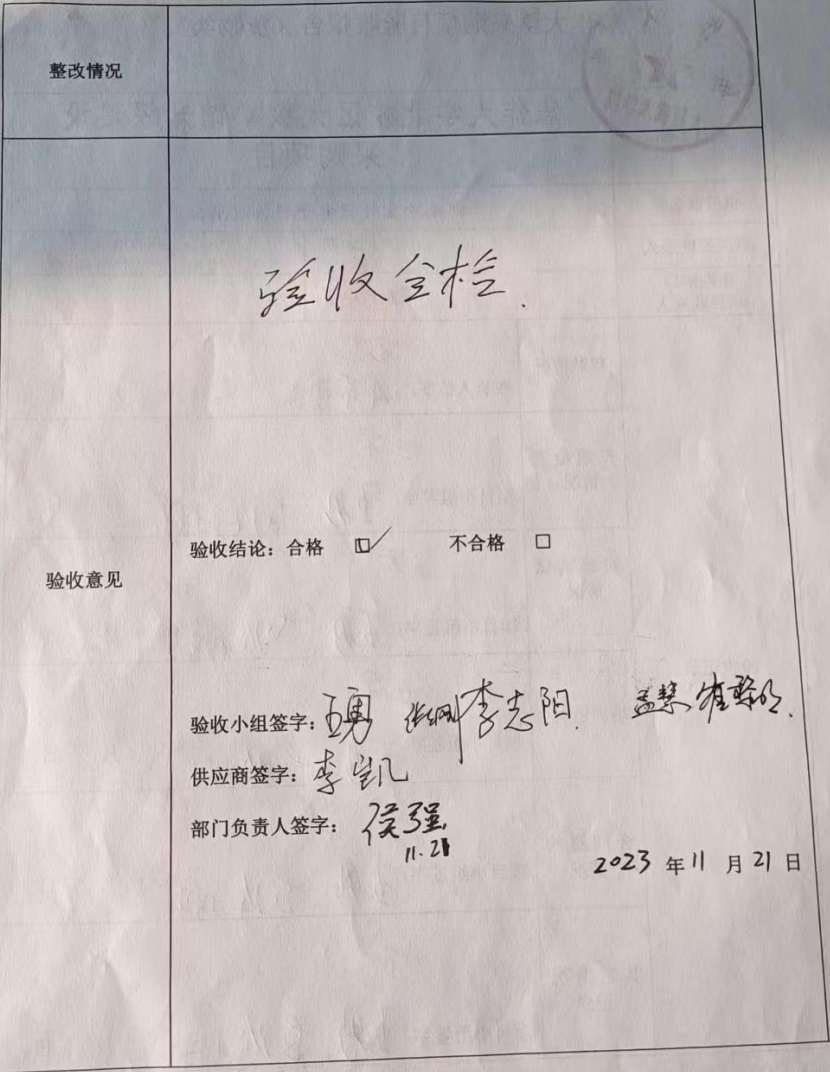 整改情况
验收合格.
验收意见
验收结论：合格 ☑ 不合格 □
验收小组签字：王勇 李志阳. 孟慧
供应商签字：李凯
部门负责人签字：侯强
11.21
2023年11月21日